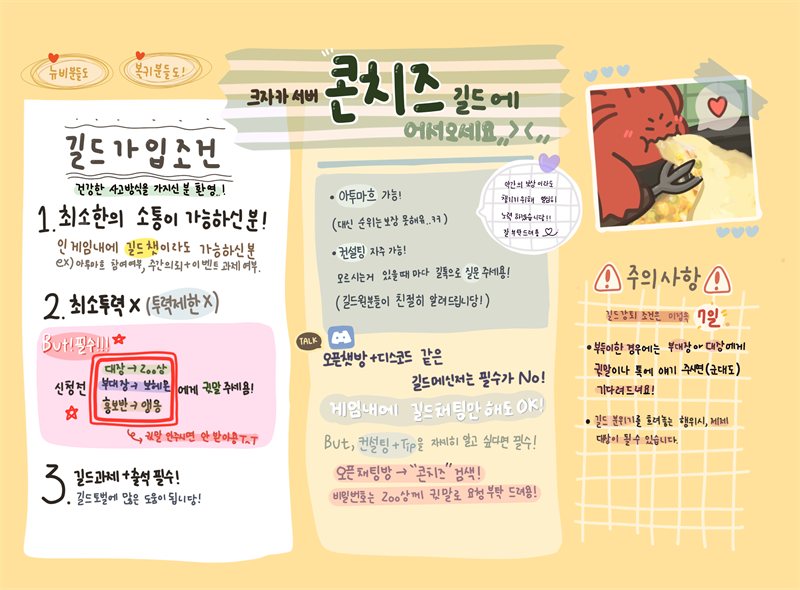 뉴비분들도
복귀분들도!
크자카 서버 콘치즈 길드에
어서오세요,,><,,
길드가입조건
건강한 사고방식을 가지신 분 환영..!
1. 최소한의 소통이 가능하신분!
인게임내에 길드챗이라도 가능하신분
ex) 아투마흐 참여여부, 주간의뢰+이벤트 과제여부.
2. 최소투력 X (투력제한 X)
But! 필수!!!
신청전
대장→200상
부대장→보헤온
홍보반→앵응
에게 귓말 주세용!
귓말 안주시면 안 받아용T.T
3. 길드과제+출석 필수!
길드토벌에 많은 도움이 됩니당!
• 아투마흐 가능!
(대신 순위는 보장 못해요..ㅋㅋ)
• 컨설팅 자주 가능!
모르시는거 있을때 마다 길톡으로 질문 주세용!
(길드원분들이 친절히 알려드립니당!)
약간의 보상이라도
챙기기위해 열심히
노력 하겠습니당!!
잘 부탁드려용♡
TALK
오픈챗방+디스코드 같은
길드메신저는 필수가 No!
게임내에 길드채팅만 해도 OK!
But, 컨설팅+Tip을 자세히 알고 싶다면 필수!
오픈채팅방→"콘치즈"검색!
비밀번호는 200상께 귓말로 요청부탁 드려용!
주의사항
길드강퇴 조건은 미접속 7일
• 부득이한 경우에는 부대장이나 대장에게
귓말이나 톡에 얘기 주시면(군대도)
기다려드려요!
• 길드 분위기를 흐려놓는 행위시, 제제
대상이 될 수 있습니다.